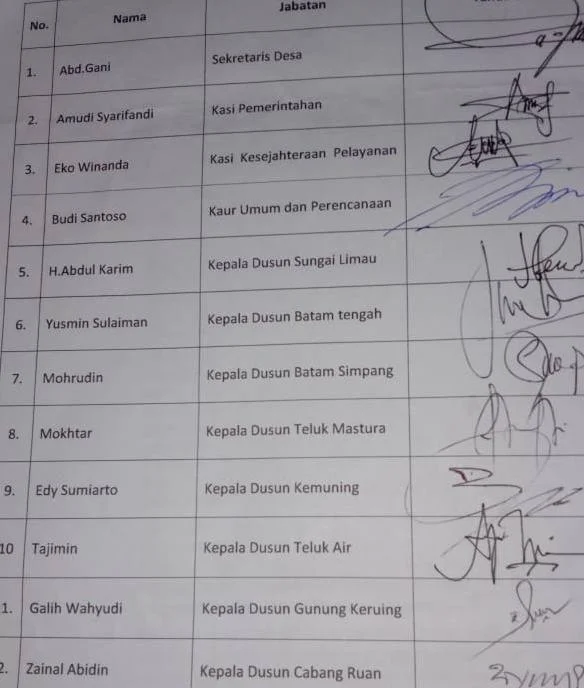 No. Nama Jabatan
1. Abd.Gani Sekretaris Desa
2. Amudi Syarifandi Kasi Pemerintahan
3. Eko Winanda Kasi Kesejahteraan Pelayanan
4. Budi Santoso Kaur Umum dan Perencanaan
5. H.Abdul Karim Kepala Dusun Sungai Limau
6. Yusmin Sulaiman Kepala Dusun Batam tengah
7. Mohrudin Kepala Dusun Batam Simpang
8. Mokhtar Kepala Dusun Teluk Mastura
9. Edy Sumiarto Kepala Dusun Kemuning
10 Tajimin Kepala Dusun Teluk Air
1. Galih Wahyudi Kepala Dusun Gunung Keruing
2. Zainal Abidin Kepala Dusun Cabang Ruan